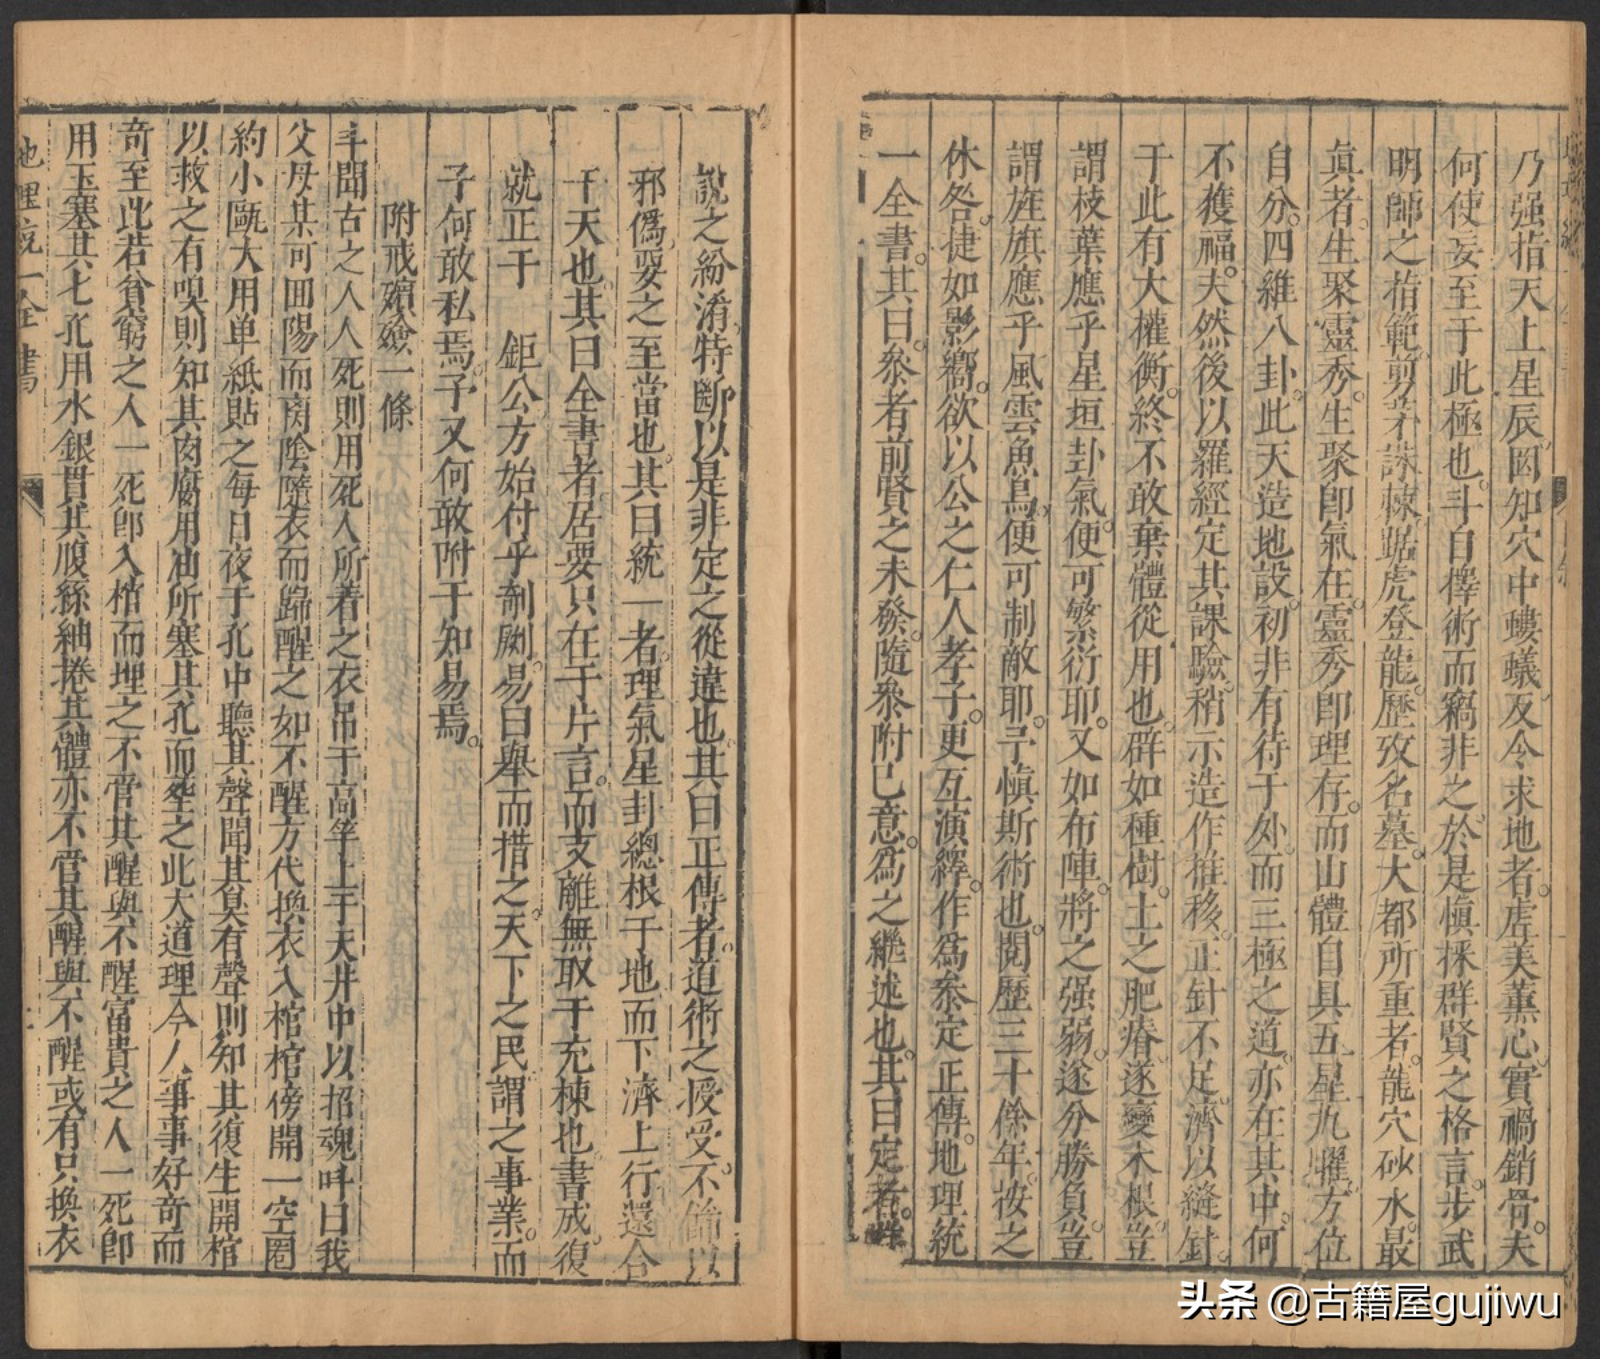 乃强指天上星辰因知穴中螻蟻及今求地者虐美薰心實禍銷骨夫
何使妄至于此極也斗自擇術而竊非之於是愼採群賢之格言步武
明師之指範剪茅誅棘踞虎登龍歷攷名墓大都所重者龍穴砂水最
眞者生聚靈秀生聚卽氣在靈秀卽理存而山體自具五星九曜方位
自分四維八卦此天造地設初非有待于外而三極之道亦在其中何
不獲福夫然後以羅經定其課驗稍示造作推移正針不足濟以縫針
于此有大權衡終不敢棄體從用也辟如種樹土之肥瘠遂變木根豈
謂枝葉應乎星垣卦氣便可繁衍耶又如布陣將之强弱遂分勝負豈
謂旌旗應乎風雲魚鳥便可制敵耶予愼斯術也閱歷三十餘年按之
休咎捷如影嚮欲以公之仁人孝子更互演繹作爲叅定正傳地理統
一全書其曰叅者前賢之未發隨叅附已意爲之繼述也其曰定者群
說之紛淆特斷以是非定之從違也其曰正傳者道術之授受不偷以
邪僞要之至當也其曰統一者理氣星封總根于地而下濟上行還合
于天也其曰全書者居要只在于片言而支離無取于充棟也書成復
就正于 鉅公方始付乎剞劂易曰舉而措之天下之民謂之事業而
子何敢私焉子又何敢附于知易焉
附戒殯殮一條
斗聞古之人人死則用死人所着之衣吊于高竿上于天井中以招魂呌曰我
父母某可囬陽而商陰隨衣而歸醒之如不醒方代換衣入棺棺傍開一空圈
約小甌大用单紙貼之每日夜于孔中聽其聲聞其臭有聲則知其復生開棺
以救之有嗅則知其肉腐用油所塞其孔而塟之此大道理今人事事好奇而
奇至此若貧窮之人一死卽入棺而埋之不管其醒與不醒富貴之人一死卽
用玉塞其七孔用水銀貫其腹絲紬捲其體亦不管其醒與不醒或有只換衣
地理統一全書
头条 @古籍屋gujiwu